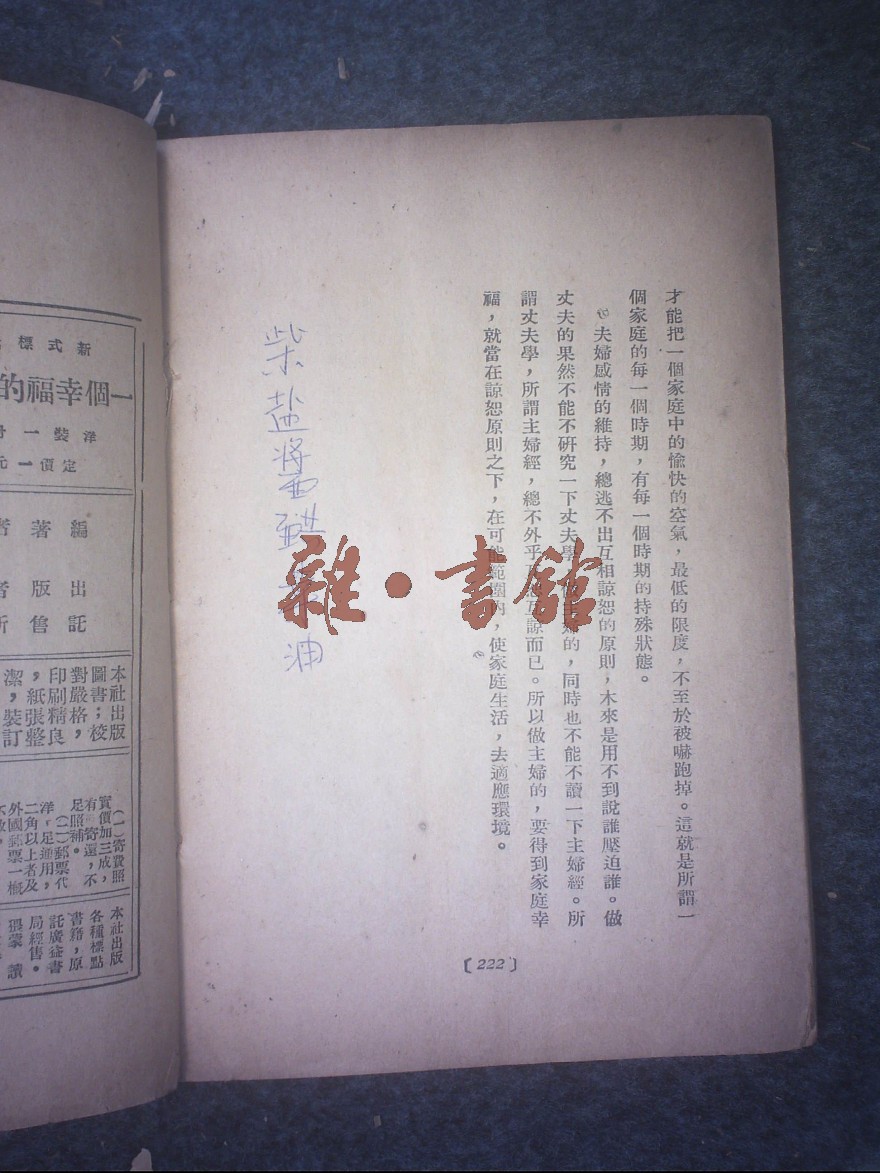 才能把一個家庭中的愉快的空氣，最低的限度，不至於被嚇跑掉。這就是所謂一
個家庭的每一個時期，有每一個時期的持殊狀態。
夫婦感情的維持，總逃不出互相諒恕的原則，木來是用不到說誰壓迫誰。做
丈夫的果然不能不研究一下丈夫學，做主婦的，同時也不能不讀一下主婦經。所
謂丈夫學，所謂主婦經，總不外乎互諒而已。所以做主婦的，要得到家庭幸
福，就當在諒恕原則之下，在可能範圍內，使家庭生活，去適應環境。
〔222〕
柴盐醬
油
雜·書館
新式標
一個幸福的
洋裝一
定價一元
編著者
出版者
託售所
本社出版
圖書；校
對嚴格，
印刷精良
，紙張整
潔，裝訂
（一）寄費照
實價加三成，
有寄還，不
足照補。
（二）郵票代
洋，足通用，
二角以上者及
外國郵票一概
本社出版
各種標點
書籍，原
託廣益書
局經售。
猥蒙讀